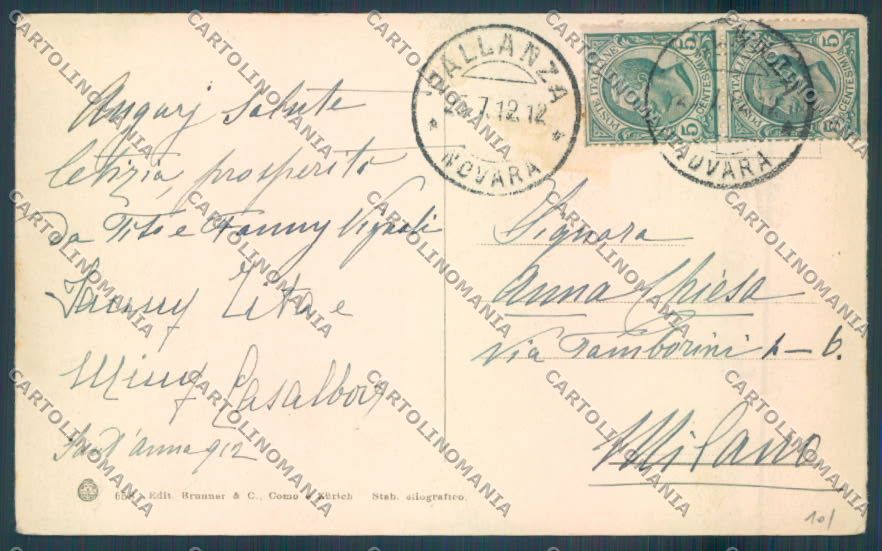 Augurj salute
letizia, prosperità
da Tito e Fanny Vignoli
Fanny Tito e
Miny Casalbor
Sant'Anna 912
Edit. Brunner & C., Como & Zürich Stab. eliografico.
PALLANZA
26.7.12.12
* NOVARA *
POSTE ITALIANE
CENTESIMI 5
POSTE ITALIANE
CENTESIMI 5
NOVARA
Signora
Anna Chiesa
Via Tamborini 4-6.
Milano
10/
CARTOLINOMANIA